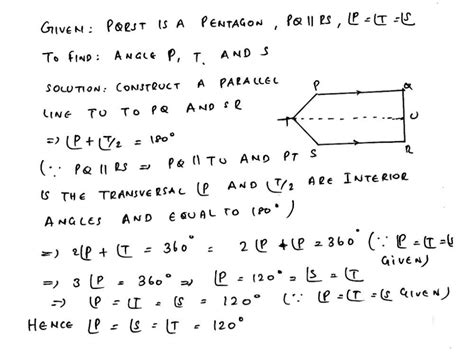 GIVEN: PQRST IS A PENTAGON, PQ || RS, ∠P = ∠T = ∠S
TO FIND: ANGLE P, T, AND S
SOLUTION: CONSTRUCT A PARALLEL
LINE TU TO PQ AND SR
⇒ ∠P + ∠T/2 = 180°
(∵ PQ || RS ⇒ PQ || TU AND PT
IS THE TRANSVERSAL ∠P AND ∠T/2 ARE INTERIOR
ANGLES AND EQUAL TO 180°)
⇒ 2∠P + ∠T = 360° = 2∠P + ∠P = 360° (∵ ∠P = ∠T = ∠S
GIVEN)
⇒ 3∠P = 360° ⇒ ∠P = 120° = ∠S = ∠T
⇒ ∠P = ∠T = ∠S = 120° (∵ ∠P = ∠T = ∠S GIVEN)
HENCE ∠P = ∠S = ∠T = 120°
P
Q
T
U
S
R